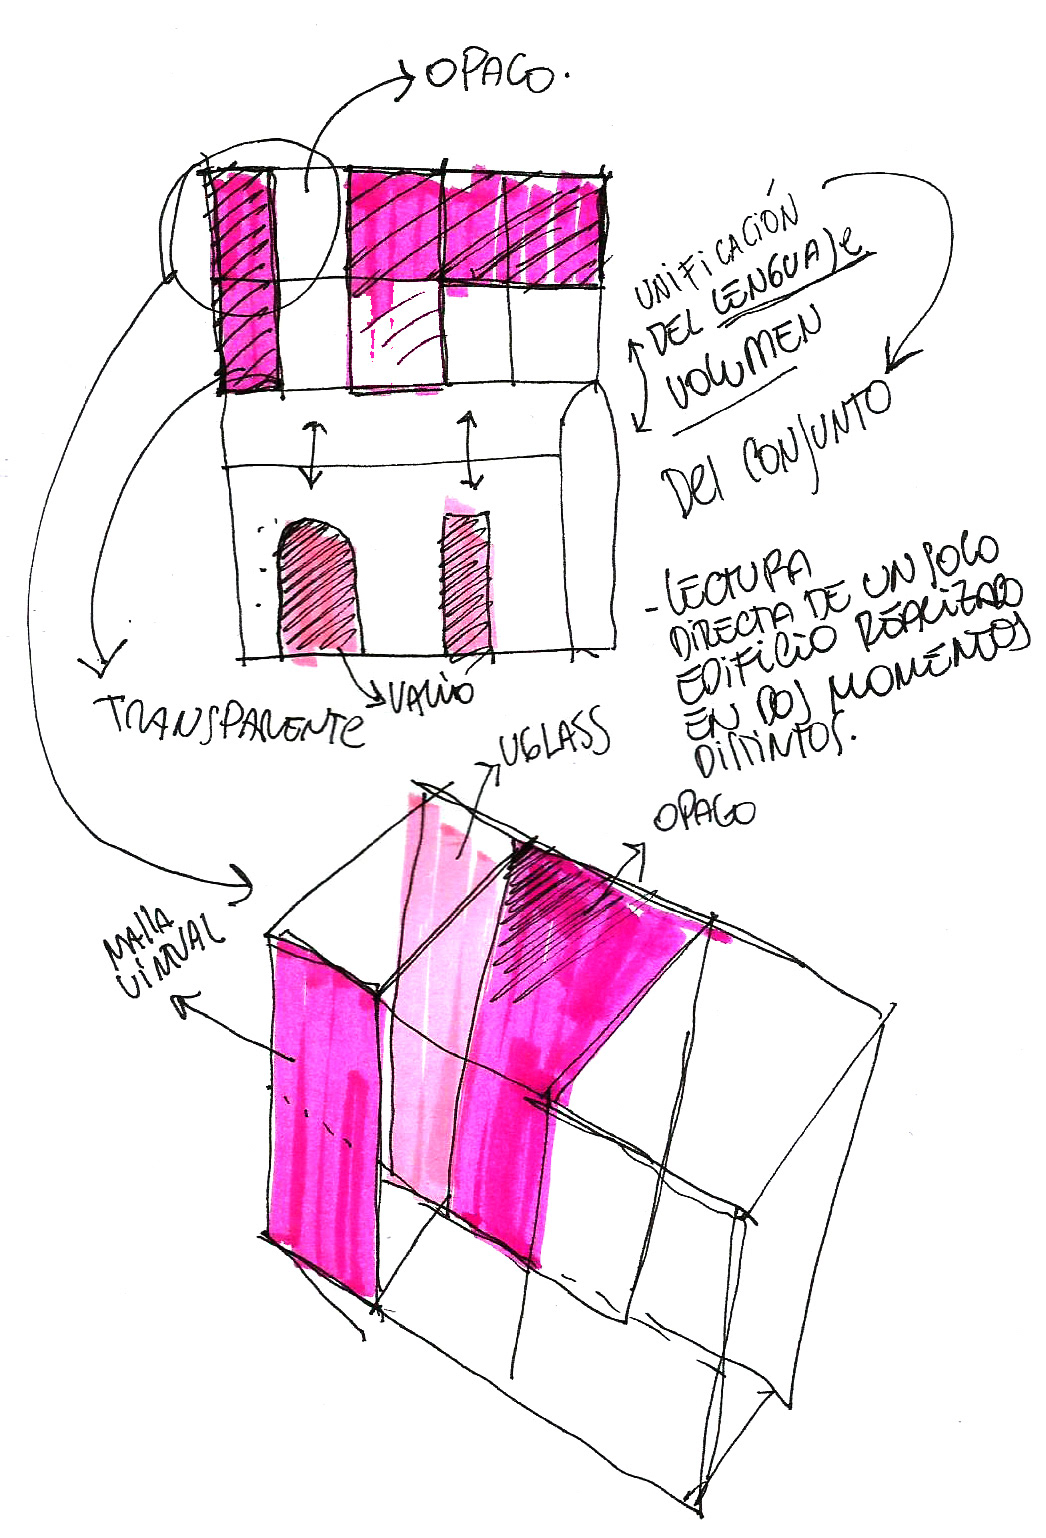 OPACO.
UNIFICACIÓN
DEL LENGUAJE
VOLUMEN
DEL CONJUNTO
- LECTURA
DIRECTA DE UN SOLO
EDIFICIO REALIZADO
EN DOS MOMENTOS
DISTINTOS.
TRANSPARENTE
VACIO
UGLASS
OPACO
MALLA